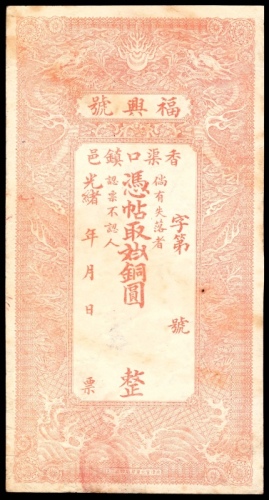 福興號
香渠口鎮邑
字第 號
倘有失落者
憑帖取 銅圓 整
認票不認人
光緒 年 月 日 票